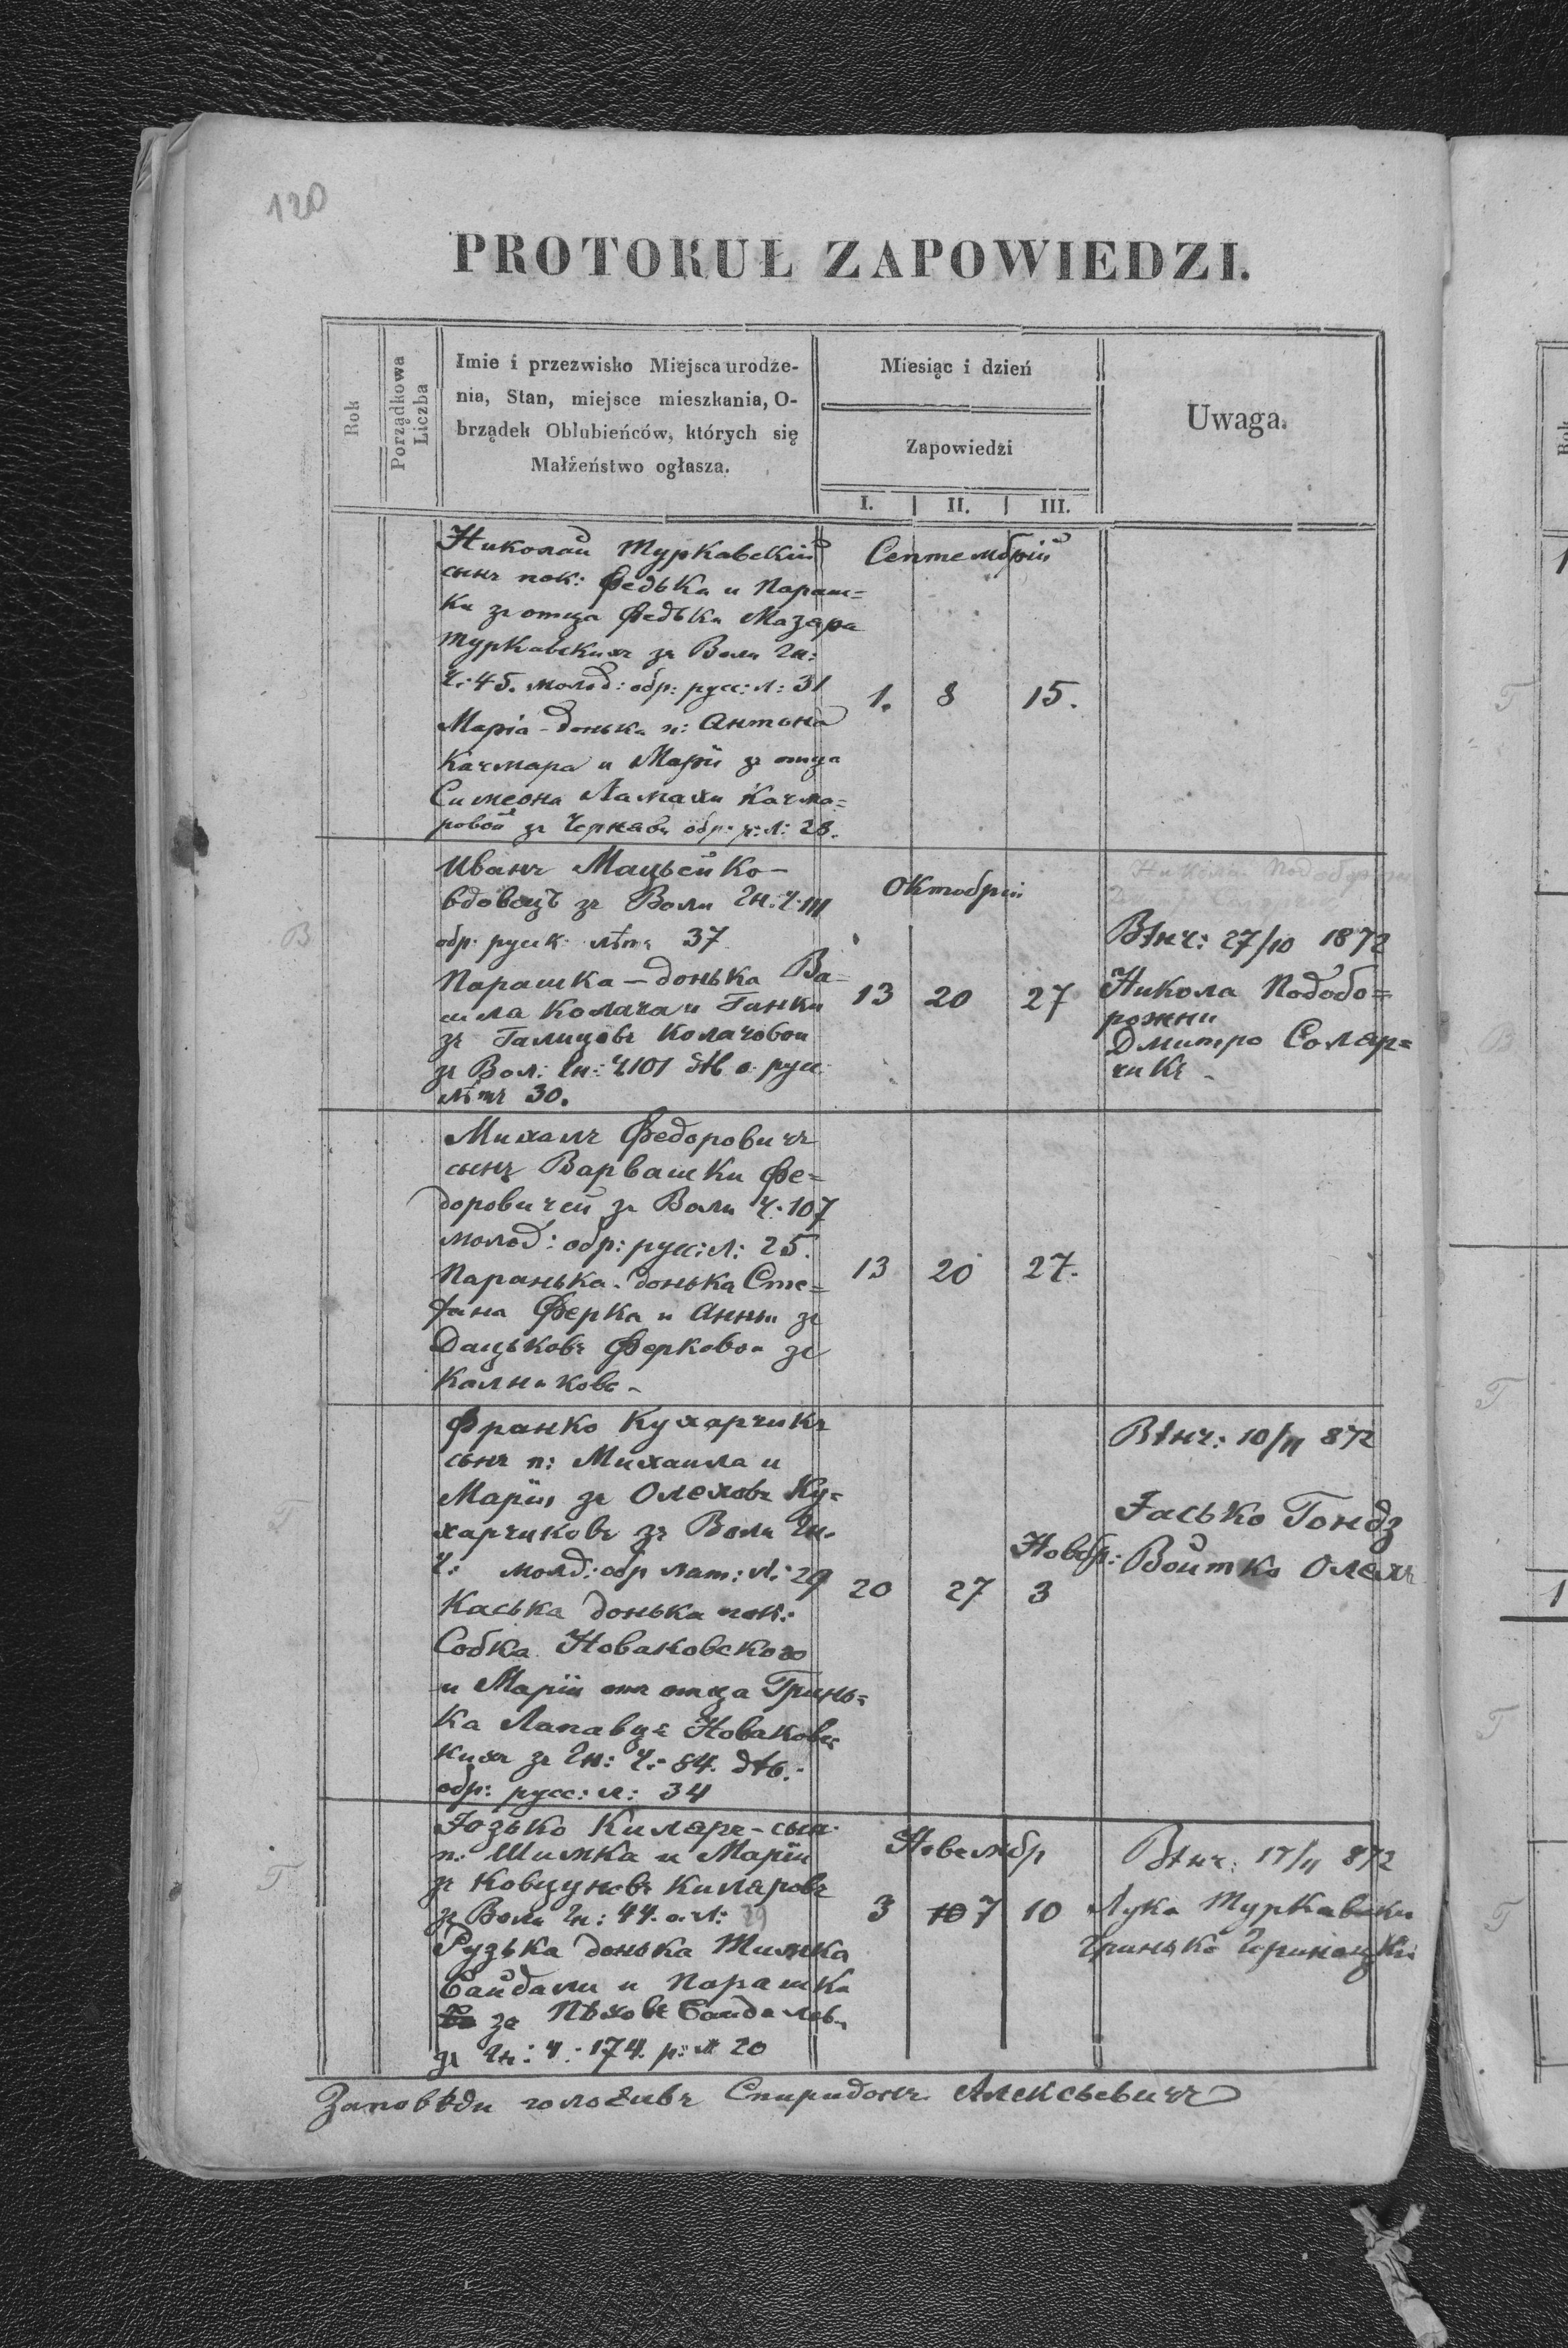 120
PROTOKUŁ ZAPOWIEDZI.
Rok
Porządkowa Liczba
Imie i przezwisko Miejsca urodze-
nia, Stan, miejsce mieszkania, O-
brządek Oblubieńców, których się
Małżeństwo ogłasza.
Miesiąc i dzień
Zapowiedzi
I. II. III.
Uwaga.
Николай Туркавскій
сынъ пок: Федька и Параш=
ки зъ отца Федька Мазара
Туркавскихъ зъ Воли Гн:
Ч: 45. молод: обр: русс: л: 31
Марія - донька п: Антона
Качмара и Маріи зъ отца
Симеона Ламахи Качма=
ровой зъ Чернавы обр: р: л: 28.
Септемврій
1. 8 15.
Иванъ Мацьейко -
вдовецъ зъ Воли Гн: Ч: 111
обр: руск: лѣтъ 37
Парашка - донька Ва=
силя Колача и Ганки
зъ Галицовъ Колачовои
зъ Вол: Гн: Ч 101 дѣв о: русс:
лѣтъ 30.
Октобрій
13 20 27
Вѣнч: 27/10 1872
Никола Подобо=
рожни
Дмитро Соляр=
чикъ -
Михалъ Федоровичъ
сынъ Варвашки Фе=
доровичей зъ Воли Ч: 107
молод: обр: русс: л: 25.
Паранька - донька Сте=
фана Ферка и Анны зъ
Дацьковъ Ферковои зъ
Калникова -
13 20 27.
Франко Кухарчикъ
сынъ п: Михаила и
Маріи зъ Олеховъ Ку=
харчиковъ зъ Воли Гн.
Ч: молд: обр лат: л: 29
Каська донька пок:
Собка Новаковского
и Маріи отъ отца Гринь=
ка Лапавця Новаковс
кихъ зъ Гн: Ч: 84. дѣв.
обр: русс: л: 34
Новбр:
20 27 3
Вѣнч: 10/11 872
Ясько Гондз
Войтко Олехъ
Юзько Киларъ - сын
п: Шимка и Маріи
зъ Ковцуновъ Киларовъ
зъ Воли Гн: 44. о. л: 29
Рузька донька Тимка
Байдали и Парашки
зъ Пѣховъ Байдаловъ
зъ Гн: Ч: 174. р: л 20
Новембр
3 10 7 10
Вѣнч: 17/11 872
Лука Туркавски
Заповѣди голосивъ Спиридонъ Алексѣевичъ